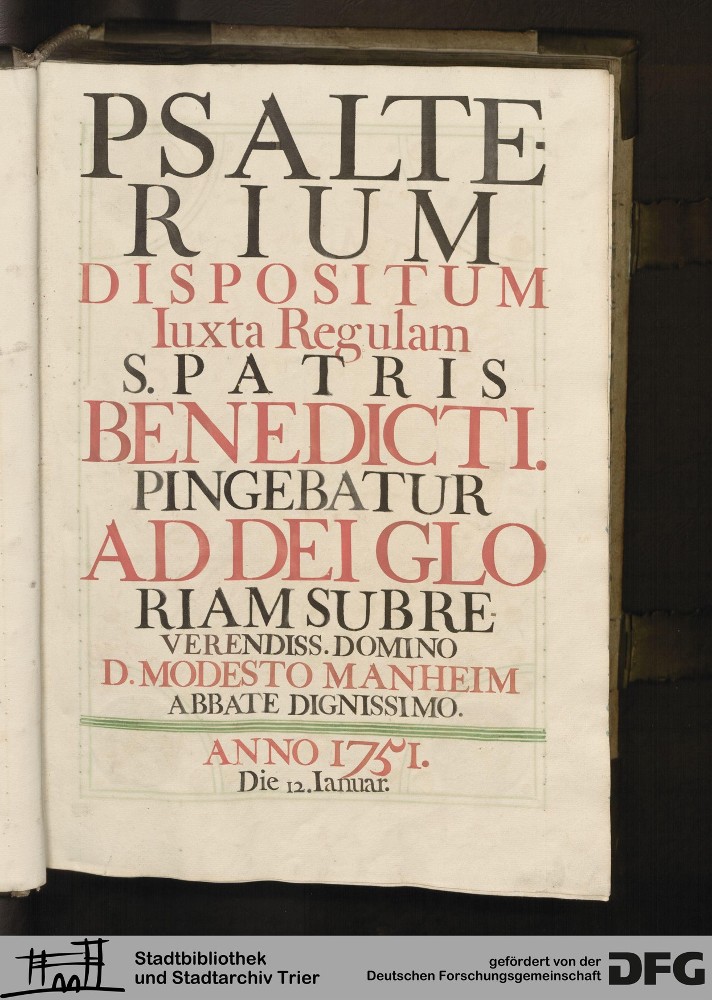 PSALTE-
RIUM
DISPOSITUM
Iuxta Regulam
S. PATRIS
BENEDICTI.
PINGEBATUR
AD DEI GLO
RIAM SUB RE-
VERENDISS. DOMINO
D. MODESTO MANHEIM
ABBATE DIGNISSIMO.
ANNO 1751.
Die 12. Ianuar.
Stadtbibliothek
und Stadtarchiv Trier
gefördert von der
Deutschen Forschungsgemeinschaft
DFG